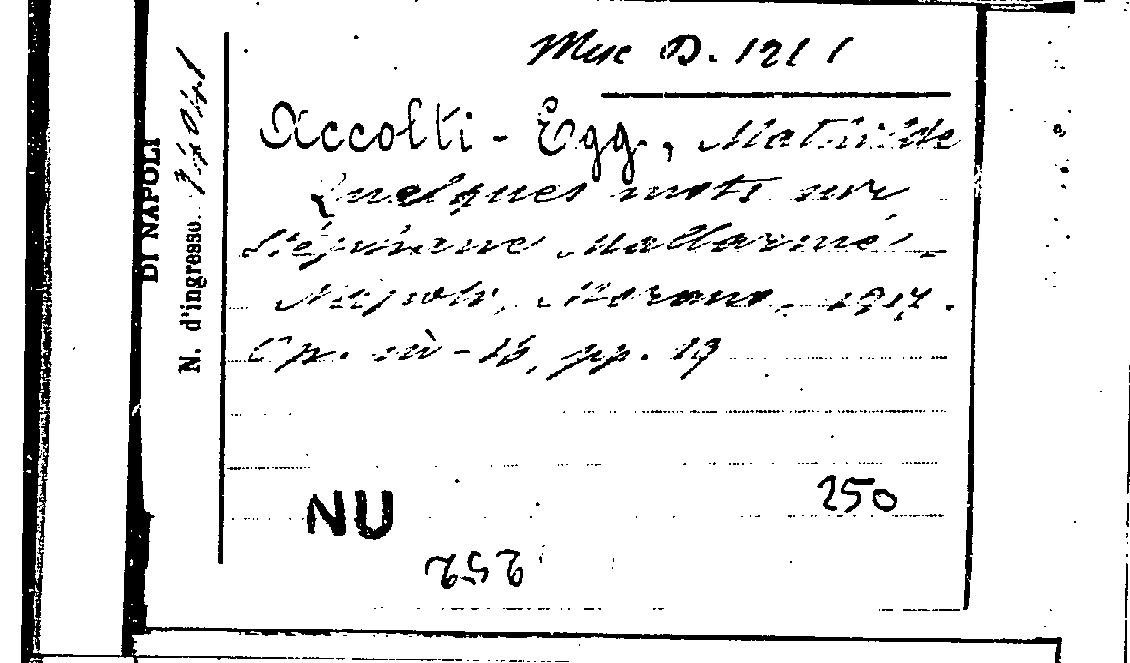 Misc D. 121 1
Accolti - Egg, Mathilde
Quelques mots sur
Stéphane Mallarmé. -
Napoli, Morano, 1917.
Op. in - 16, pp. 19
NU
250
252
DI NAPOLI
N. d'ingresso.